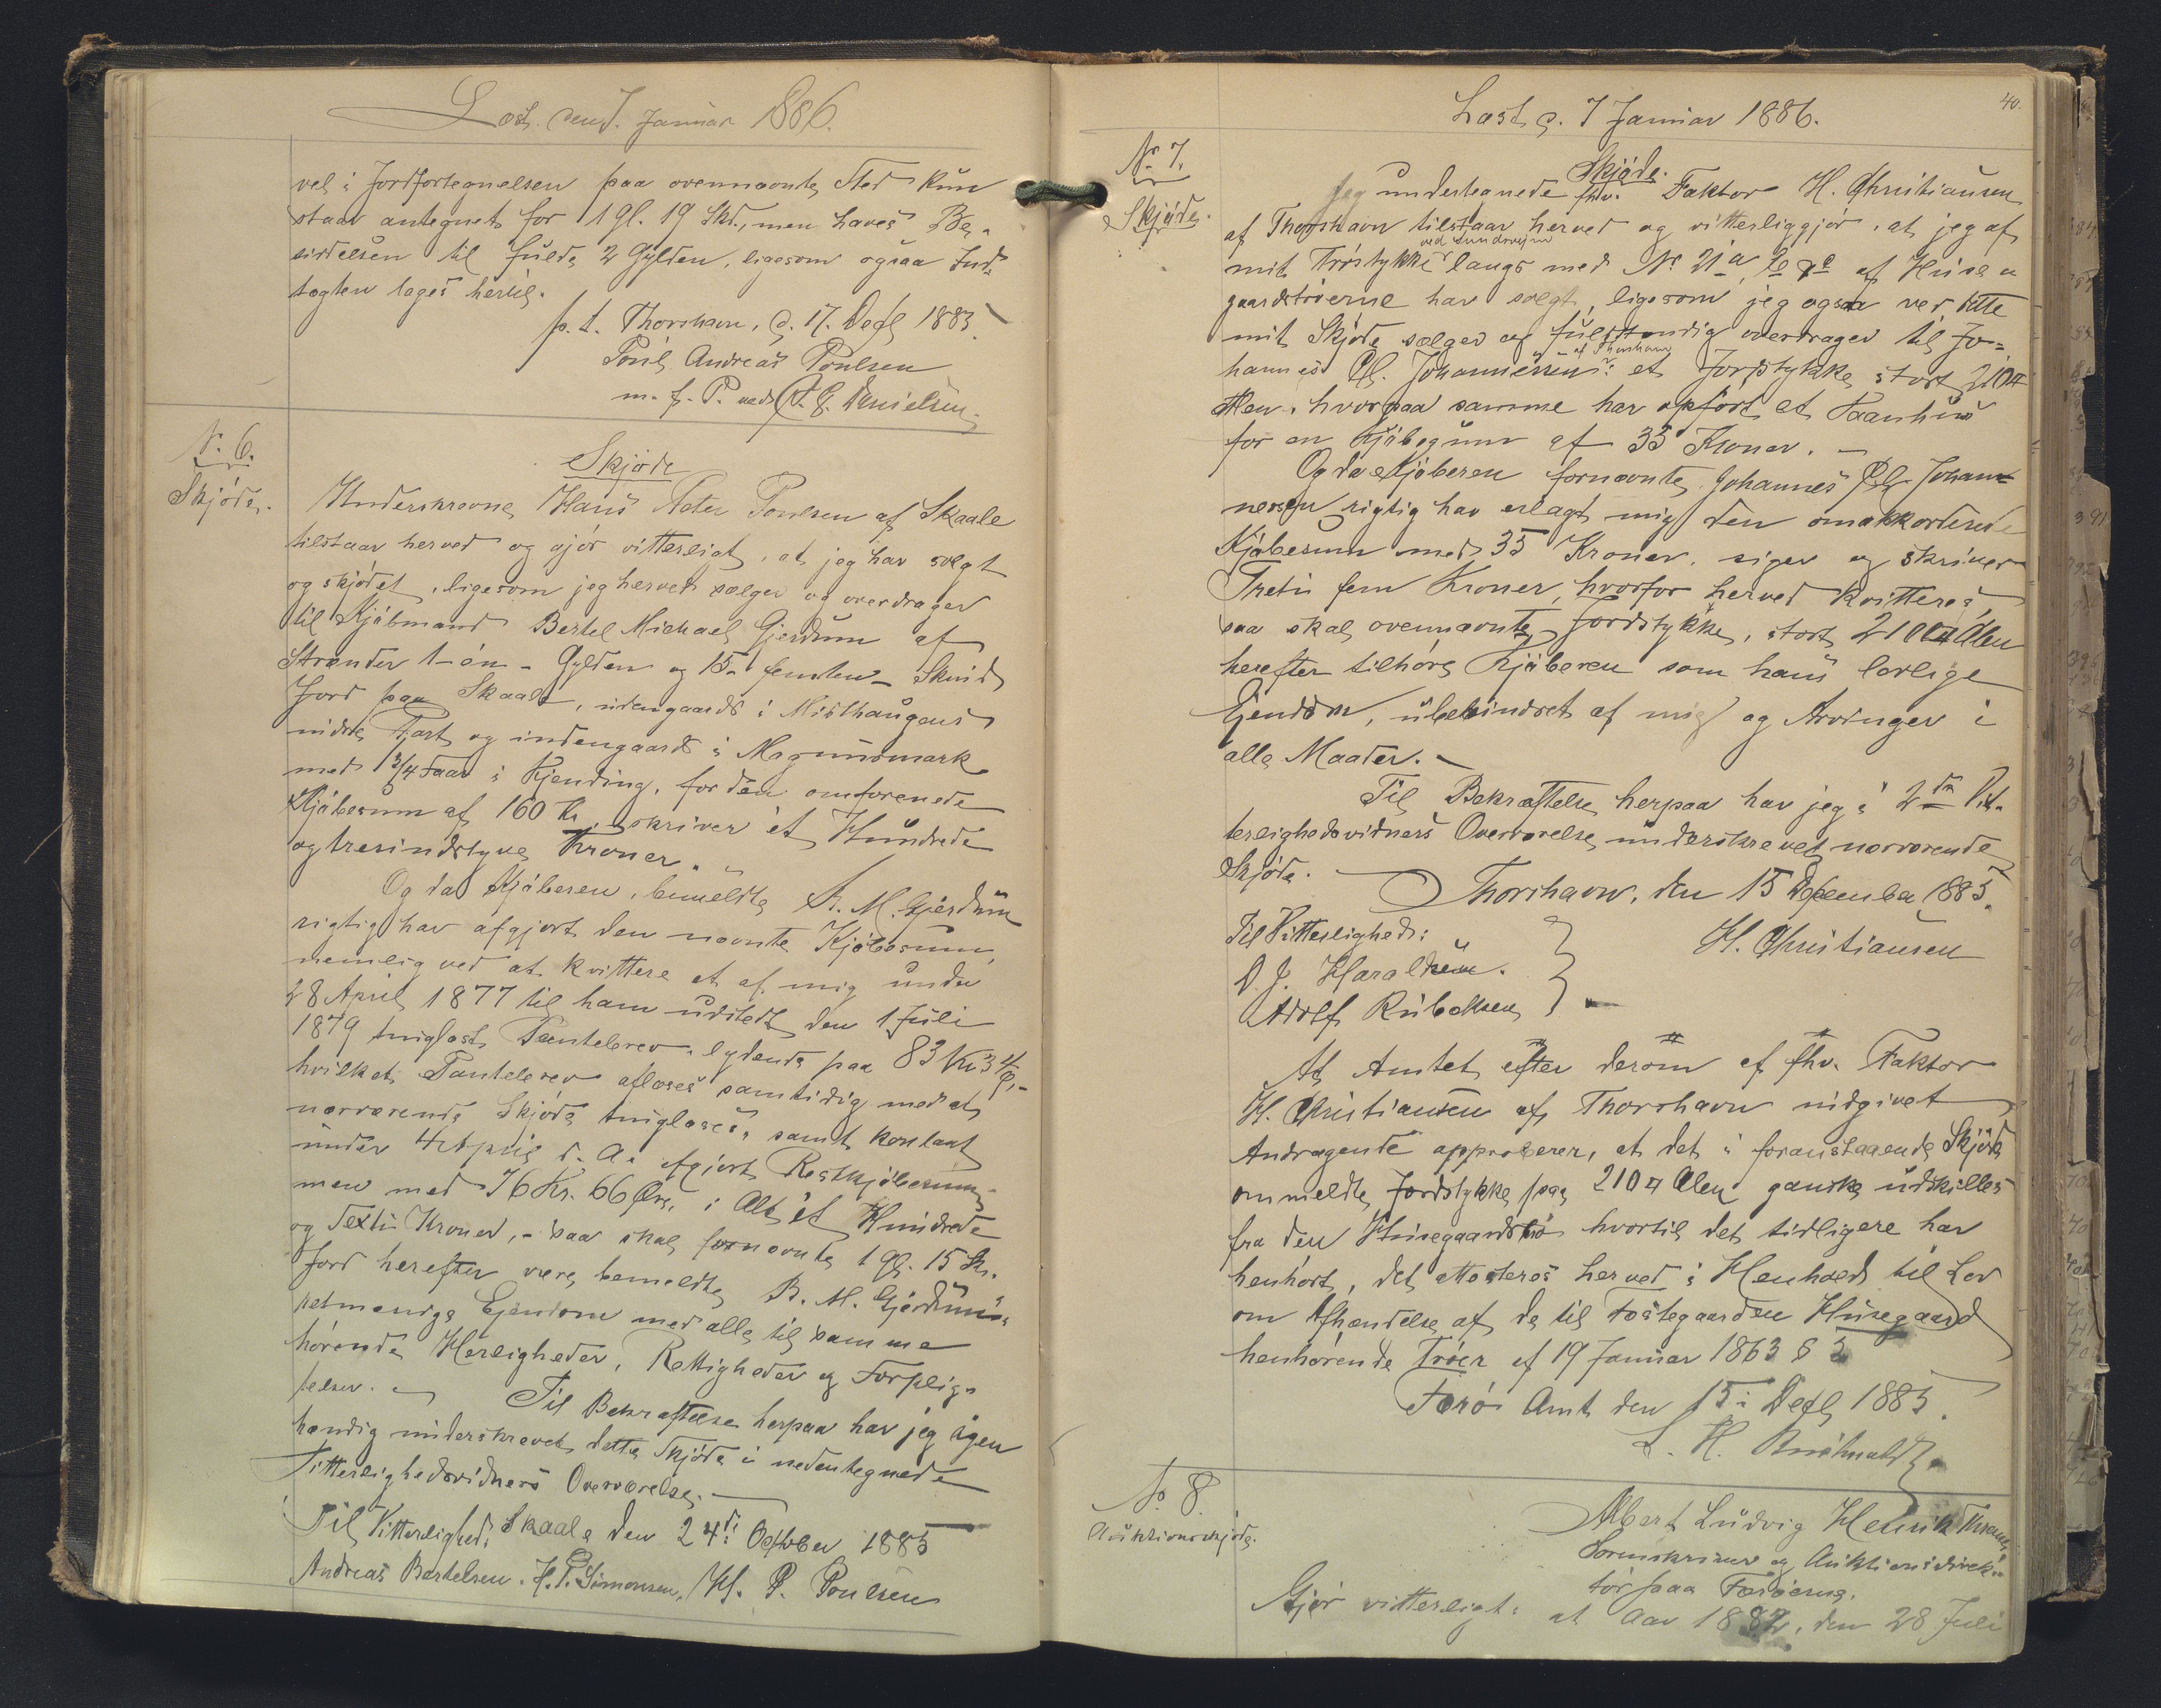 Læst. den 7. Januar 1886.
vel i Jordfortegnelsen paa ovennævnte Sted kun
staar antegnet for 1 Gl. 19 Skd., men haves Be-
siddelsen til fulde 2 Gylden, ligesom ogsaa Ind-
tægten tages hertil.
p. t. Thorshavn, d. 17. Decb 1885
Poul Andreas Poulsen
m. f. P. ved Danielsen
N. 6.
Skjøde.
Skjøde
Underskrevne Hans Peter Poulsen af Skaale
tilstaar herved og gjør vitterligt, at jeg har solgt
og skjødet, ligesom jeg herved sælger og overdrager
til Kjøbmand Bertel Michael Gjerdum af
Strænder 1 - én - Gylden og 15 - femten - Skind
Jord paa Skaale, udengaards i Misthaugens
nidste Part og indengaards i Magnusmark
med 1 3/4 Faar i Kjending, for den omforenede
Kjøbesum af 160 Kr., skriver et Hundrede
og tresindstyve Kroner.
Og da Kjøberen, bemeldte B. M. Gjerdum
rigtig har afgjort den nævnte Kjøbesum,
nemlig ved at kvittere et af mig under
28 April 1877 til ham udstedt den 1 Juli
1879 tinglæst Pantebrev, lydende paa 83 Kr 34 Ø,-
hvilket Pantebrev aflæses samtidig med at
nærværende Skjøde tinglæses, samt kontant
under 4 April d. A. afgjort Restkjøbesum-
men med 76 Kr. 66 Øre, i Alt et Hundrede
og Sexti Kroner, - saa skal fornævnte 1 Gl. 15 Sk.
Jord herefter være bemeldte B. M. Gjerdum's
retmæssige Ejendom med alle til samme
hørende Herligheder, Rettigheder og Forplig-
telser. -
Til Bekræftelse herpaa har jeg egen
hændig underskrevet dette Skjøde i nedentegnede
Vitterlighedsvidners Overværelse. -
Skaale den 24de October 1885
Til Vitterlighed:
Andreas Bertelsen. H. P. Simonsen. H. P. Poulsen
40.
Læst d. 7 Januar 1886.
N. 7.
Skjøde.
Skjøde.
Jeg undertegnede fhv. Faktor H. Christiansen
af Thorshavn tilstaar herved og vitterliggjør, at jeg af
mit Trøstykke langs med No 21 a af Husa-
gaardstrøerne har solgt, ligesom jeg ogsaa ved dette
mit Skjøde sælger og fuldstændig overdrager til Jo-
af Thorshavn
hannes Johannessen et Jordstykke, stort 210 □
Alen, hvorpaa samme har opført et Vaanhus
for en Kjøbesum af 35 Kroner. -
Og da Kjøberen fornævnte Johannes Johan-
nessen rigtig har erlagt mig den omakkorderede
Kjøbesum med 35 Kroner, siger og skriver
Treti fem Kroner, hvorfor herved kvitteres,
saa skal ovennævnte Jordstykke, stort 210 □ Alen
herefter tilhøre Kjøberen som hans lovlige
Ejendom, ubehindret af mig og Arvinger i
alle Maader. -
Til Bekræftelse herpaa har jeg i 2de Vit-
terlighedsvidners Overværelse underskrevet nærværende
Skjøde. -
Thorshavn, den 15 December 1885.
Til Vitterlighed:
H. Christiansen
D. J. Haraldsen.
Adolf Rubeksen
At Amtet efter derom af fhv. Faktor
H. Christiansen af Thorshavn indgivet
Andragende approberer, at det i foranstaaende Skjøde
ommeldte Jordstykke paa 210 □ Alen ganske udskilles
fra den Husegaardstrø hvortil det tidligere har
henhørt, det attesteres herved i Henhold til Lov
om Afhændelse af de til Fæstegaarden Husegaard
henhørende Trøer af 19 Januar 1863 § 3
Færø Amt den 15: Decb 1885.
N. 8
Auktionsskjøde.
Albert Ludvig Henrik
Sorenskriver og Auktionsdirek-
tør paa Færøerne.
Gjør vitterligt: at Aar 1882, den 28 Juli